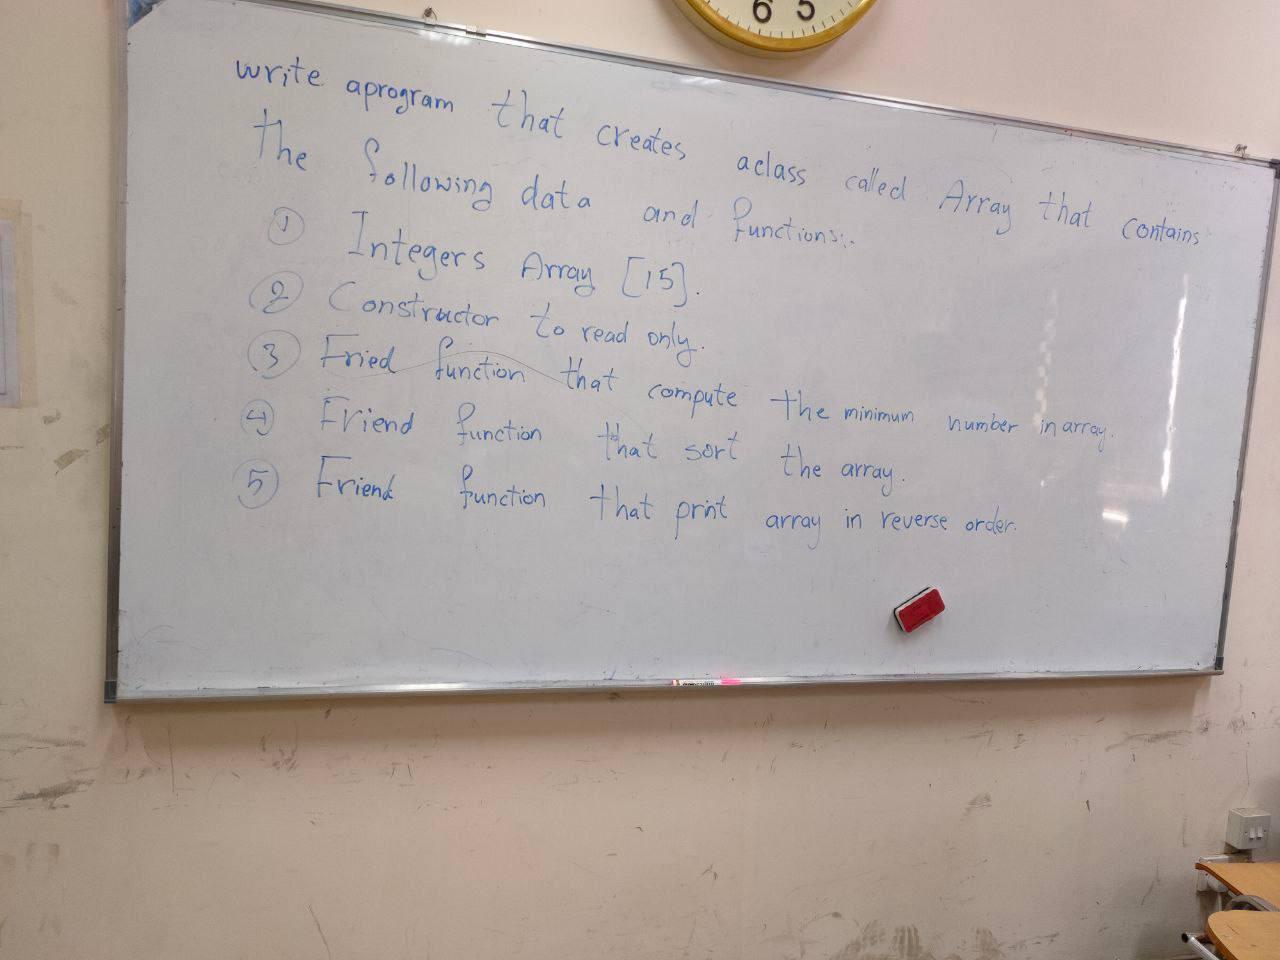 6 5
write aprogram that creates aclass called Array that contains
the following data and functions:.
1 Integers Array [15].
2 Constructor to read only.
3 Fried function that compute the minimum number in array.
4 Friend function that sort the array.
5 Friend function that print array in reverse order.